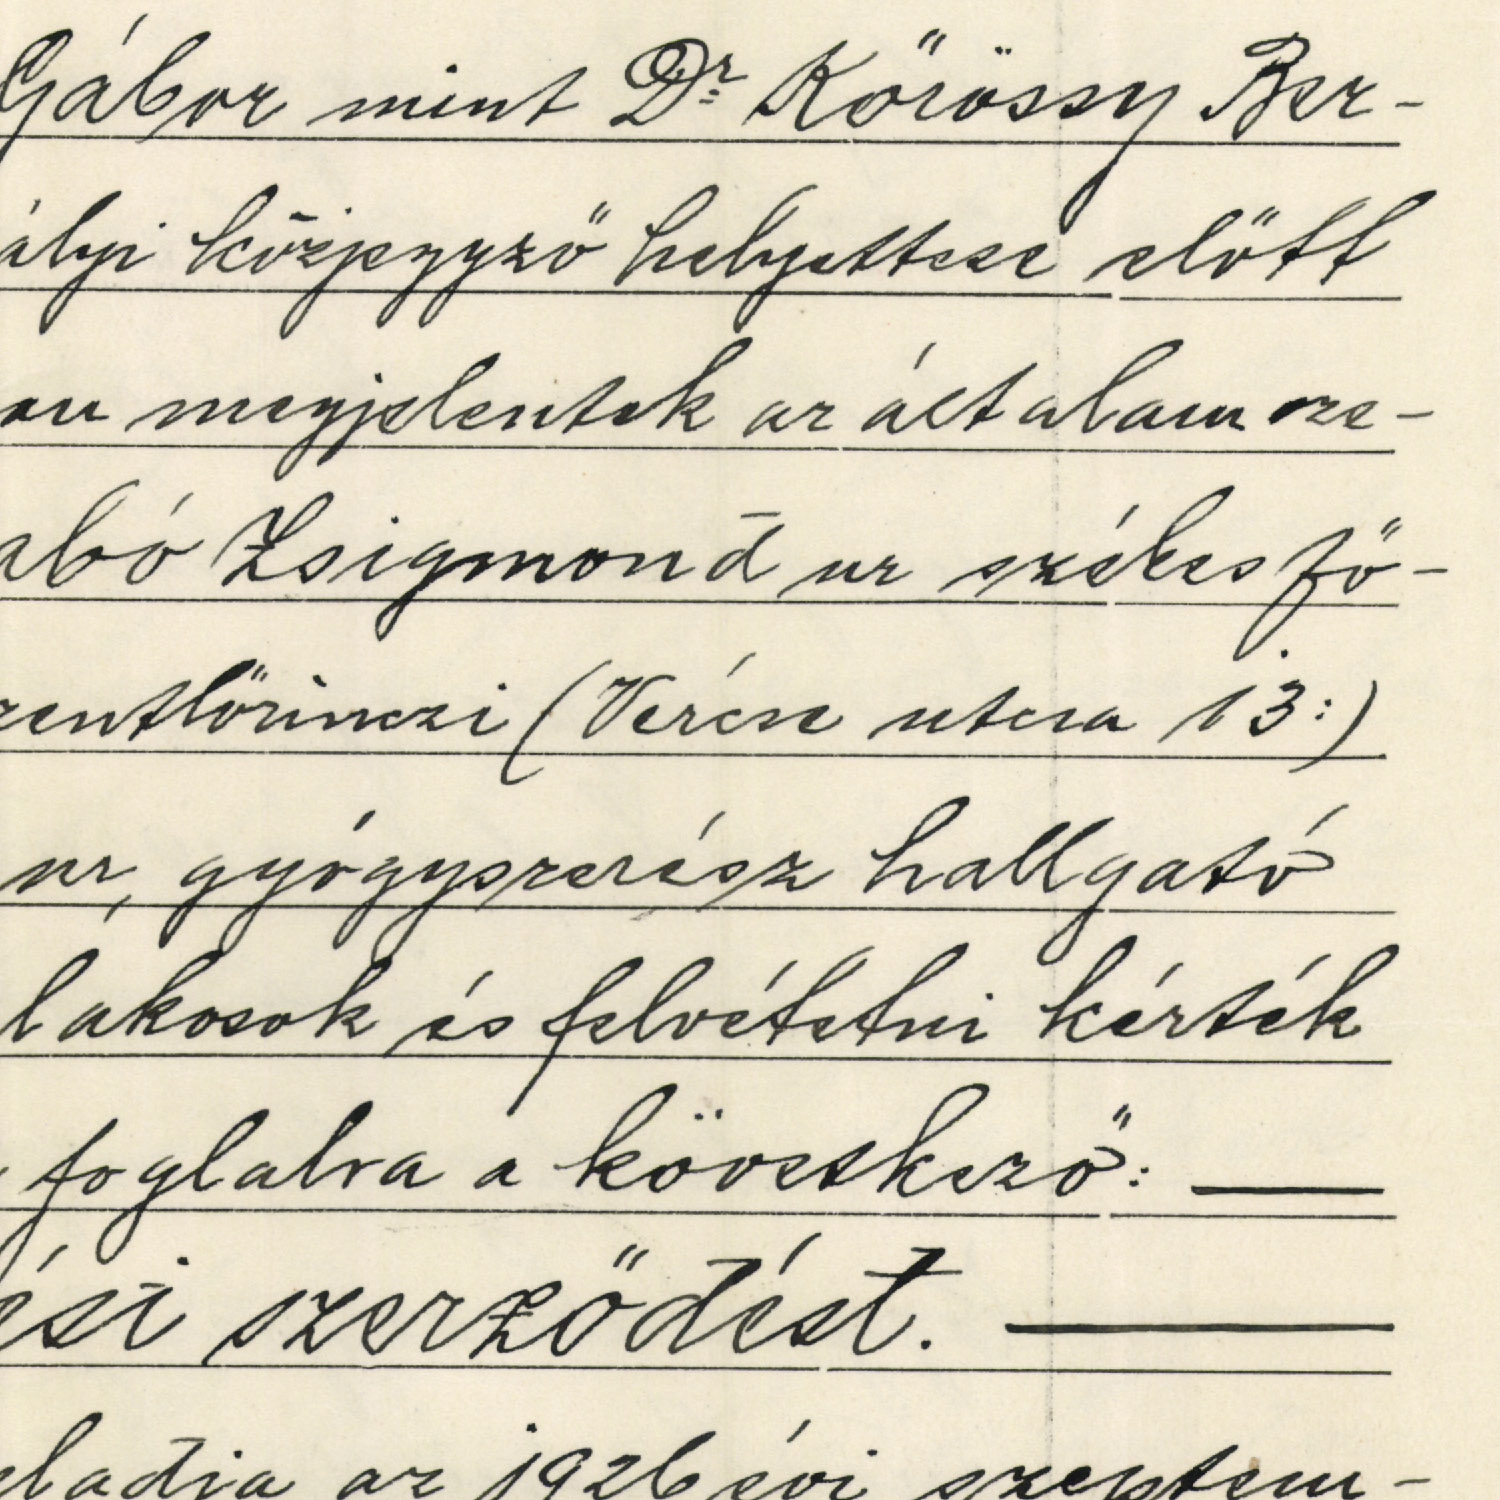 Gábor mint Dr Kőrössy Ber-
ályi közjegyző helyettese előtt
on megjelentek az általam sze-
abó Zsigmond ur székesfő-
zentlőrinczi (Vércse utcza 13:)
ur, gyógyszerész hallgató
lakosok és felvétetni kérték
foglalva a következő:
ési szerződést.
eladja az 1926 évi szeptem-